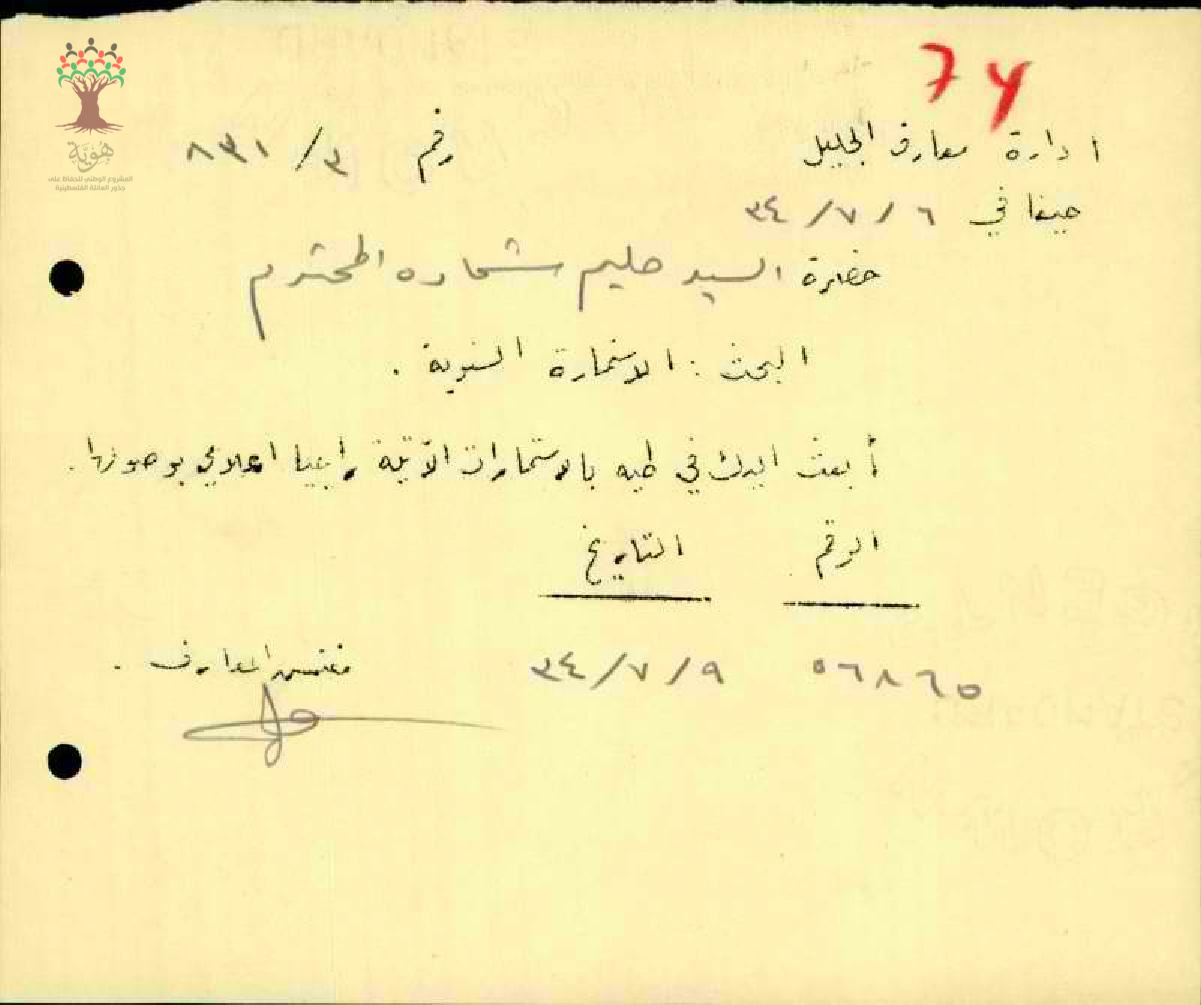 74
ادارة معارف الجليل
رقم ٣ / ٨٣١
حيفا في ٦ / ٧ / ٣٤
حضرة السيد حليم شحاده المحترم
البحث : الاستمارة السنوية .
أبعث اليك في طيه بالاستمارات الآتية راجيا اعلامي بوصولها .
الرقم التاريخ
٥٦٨٦٥ ٩ / ٧ / ٣٤
مفتش المعارف .
هُوِيَّة
المشروع الوطني للحفاظ على
جذور العائلة الفلسطينية